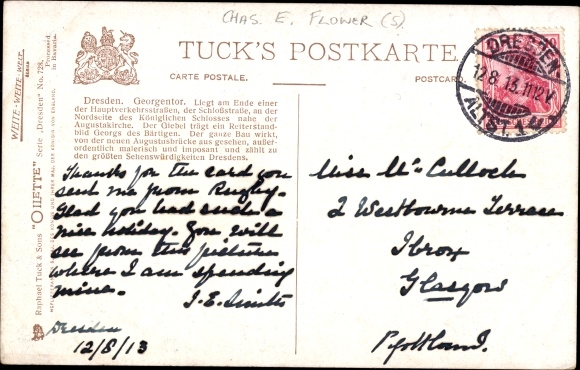 CHAS. E. FLOWER (S)
TUCK'S POSTKARTE.
CARTE POSTALE.
POSTCARD
DRESDEN
12.8.13.11-12V.
ALTST.
WEITE-WEITE-WELT
Raphael Tuck & Sons "OILETTE" Serie „Dresden" No. 728.
Processed in Bavaria.
Dresden. Georgentor. Liegt am Ende einer
der Hauptverkehrsstraßen, der Schloßstraße, an der
Nordseite des Königlichen Schlosses nahe der
Augustikirche. Der Giebel trägt ein Reiterstand-
bild Georgs des Bärtigen. Der ganze Bau wirkt,
von der neuen Augustusbrücke aus gesehen, außer-
ordentlich malerisch und imposant und zählt zu
den größten Sehenswürdigkeiten Dresdens.
Thanks for the card you
sent me from Rugby.
Glad you had such a
nice holiday. You will
see from this picture
where I am spending
mine.
J. E.
Dresden
12/8/13
Miss McCulloch
2 Westbourne Terrace
Ibrox
Glasgow
Scotland.